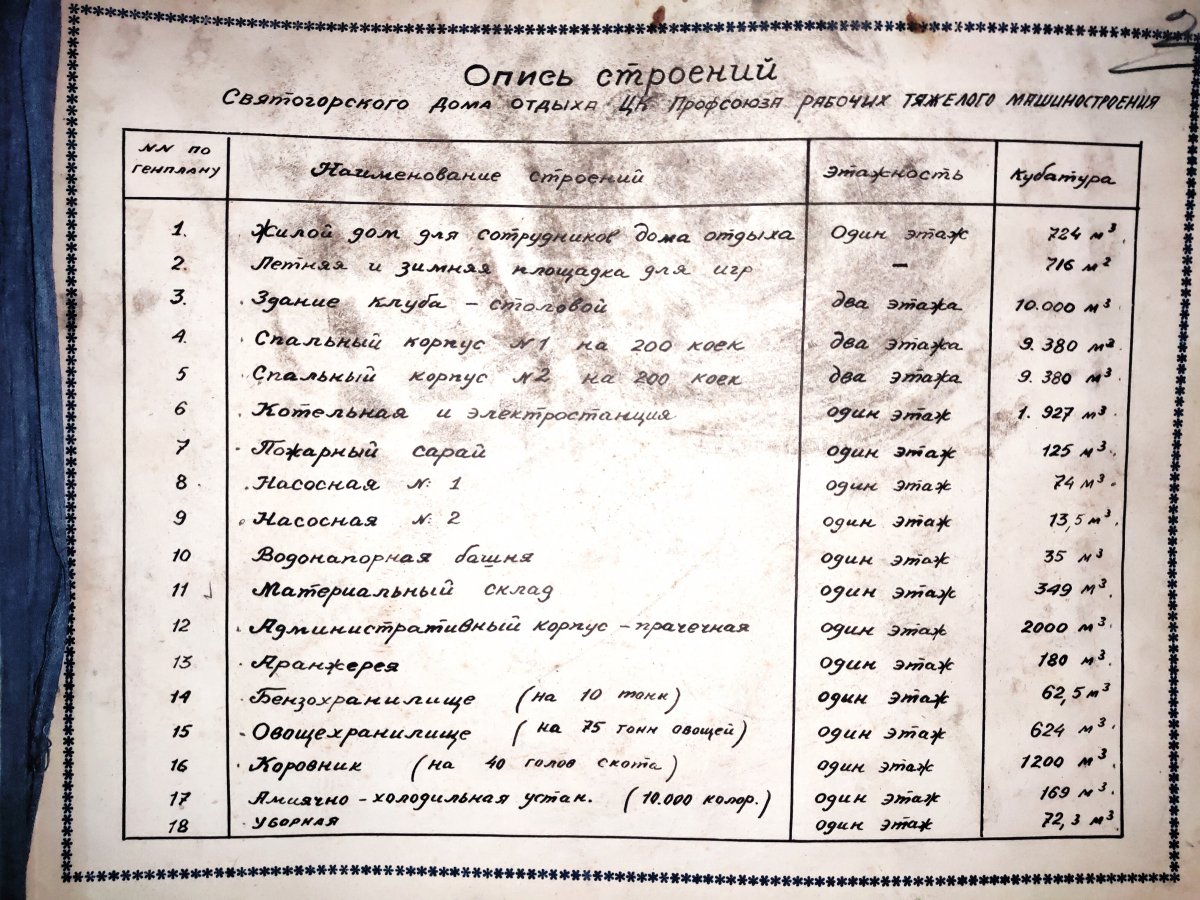 2
Опись строений
Святогорского дома отдыха ЦК Профсоюза рабочих тяжелого машиностроения
NN по генплану | Наименование строений | Этажность | Кубатура
1. Жилой дом для сотрудников дома отдыха Один этаж 724 м³.
2. Летняя и зимняя площадка для игр — 716 м²
3. Здание клуба – столовой два этажа 10.000 м³
4. Спальный корпус N1 на 200 коек два этажа 9.380 м³
5 Спальный корпус N2 на 200 коек два этажа 9.380 м³
6 Котельная и электростанция один этаж 1.927 м³.
7 Пожарный сарай один этаж 125 м³.
8 Насосная N: 1 один этаж 74 м³.
9 Насосная N: 2 один этаж 13,5 м³.
10 Водонапорная башня один этаж 35 м³
11 Материальный склад один этаж 349 м³.
12 Административный корпус – прачечная один этаж 2000 м³.
13 Аранжерея один этаж 180 м³.
14 Бензохранилище (на 10 тонн) один этаж 62,5 м³
15 Овощехранилище (на 75 тонн овощей) один этаж 624 м³
16 Коровник (на 40 голов скота) один этаж 1200 м³
17 Амиячно – холодильная устан. (10.000 колор.) один этаж 169 м³.
18 Уборная один этаж 72,3 м³